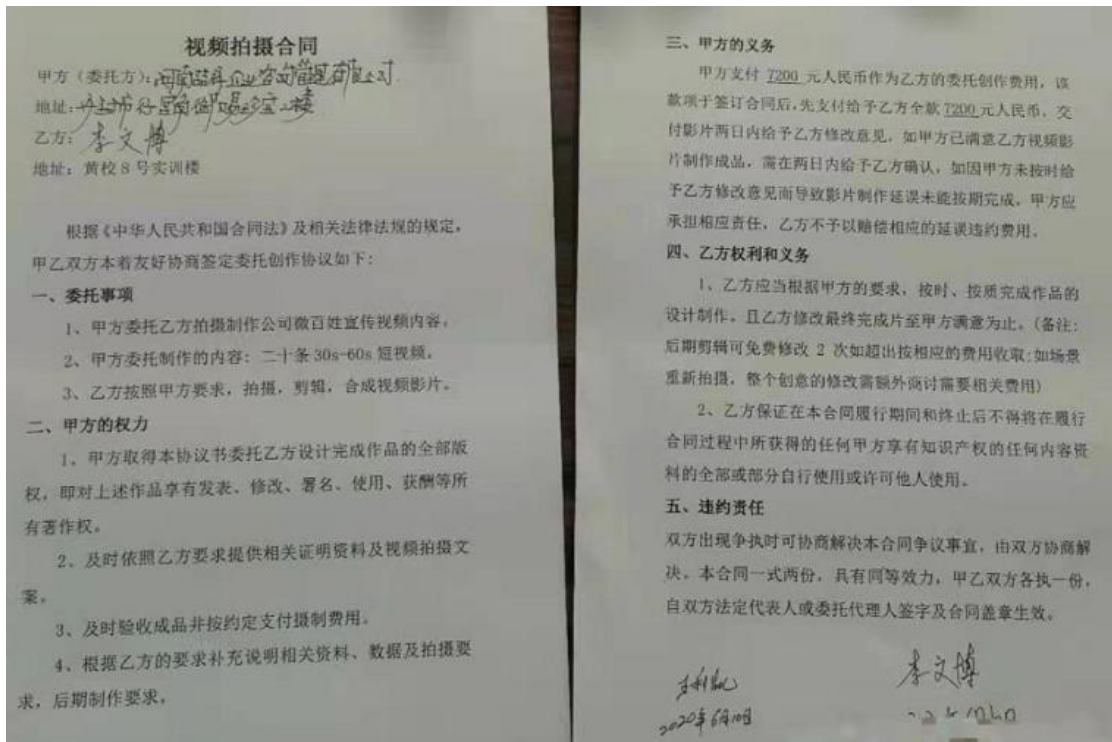 视频拍摄合同
甲方（委托方）：河南 企业咨询管理有限公司
地址：
乙方：李文博
地址：黄校8号实训楼
根据《中华人民共和国合同法》及相关法律法规的规定，
甲乙双方本着友好协商签定委托创作协议如下：
一、委托事项
1、甲方委托乙方拍摄制作公司微百姓宣传视频内容。
2、甲方委托制作的内容：二十条30s-60s短视频。
3、乙方按照甲方要求，拍摄，剪辑，合成视频影片。
二、甲方的权力
1、甲方取得本协议书委托乙方设计完成作品的全部版
权，即对上述作品享有发表、修改、署名、使用、获酬等所
有著作权。
2、及时依照乙方要求提供相关证明资料及视频拍摄文
案。
3、及时验收成品并按约定支付摄制费用。
4、根据乙方的要求补充说明相关资料、数据及拍摄要
求，后期制作要求。
三、甲方的义务
甲方支付 7200 元人民币作为乙方的委托创作费用，该
款项于签订合同后，先支付给予乙方全款7200元人民币，交
付影片两日内给予乙方修改意见，如甲方已满意乙方视频影
片制作成品，需在两日内给予乙方确认，如因甲方未按时给
予乙方修改意见而导致影片制作延误未能按期完成，甲方应
承担相应责任，乙方不予以赔偿相应的延误违约费用。
四、乙方权利和义务
1、乙方应当根据甲方的要求，按时、按质完成作品的
设计制作。且乙方修改最终完成片至甲方满意为止。（备注：
后期剪辑可免费修改 2 次如超出按相应的费用收取：如场景
重新拍摄，整个创意的修改需额外商讨需要相关费用）
2、乙方保证在本合同履行期间和终止后不得将在履行
合同过程中所获得的任何甲方享有知识产权的任何内容资
料的全部或部分自行使用或许可他人使用。
五、违约责任
双方出现争执时可协商解决本合同争议事宜，由双方协商解
决。本合同一式两份，具有同等效力，甲乙双方各执一份，
自双方法定代表人或委托代理人签字及合同盖章生效。
李文博
2020年6月10日